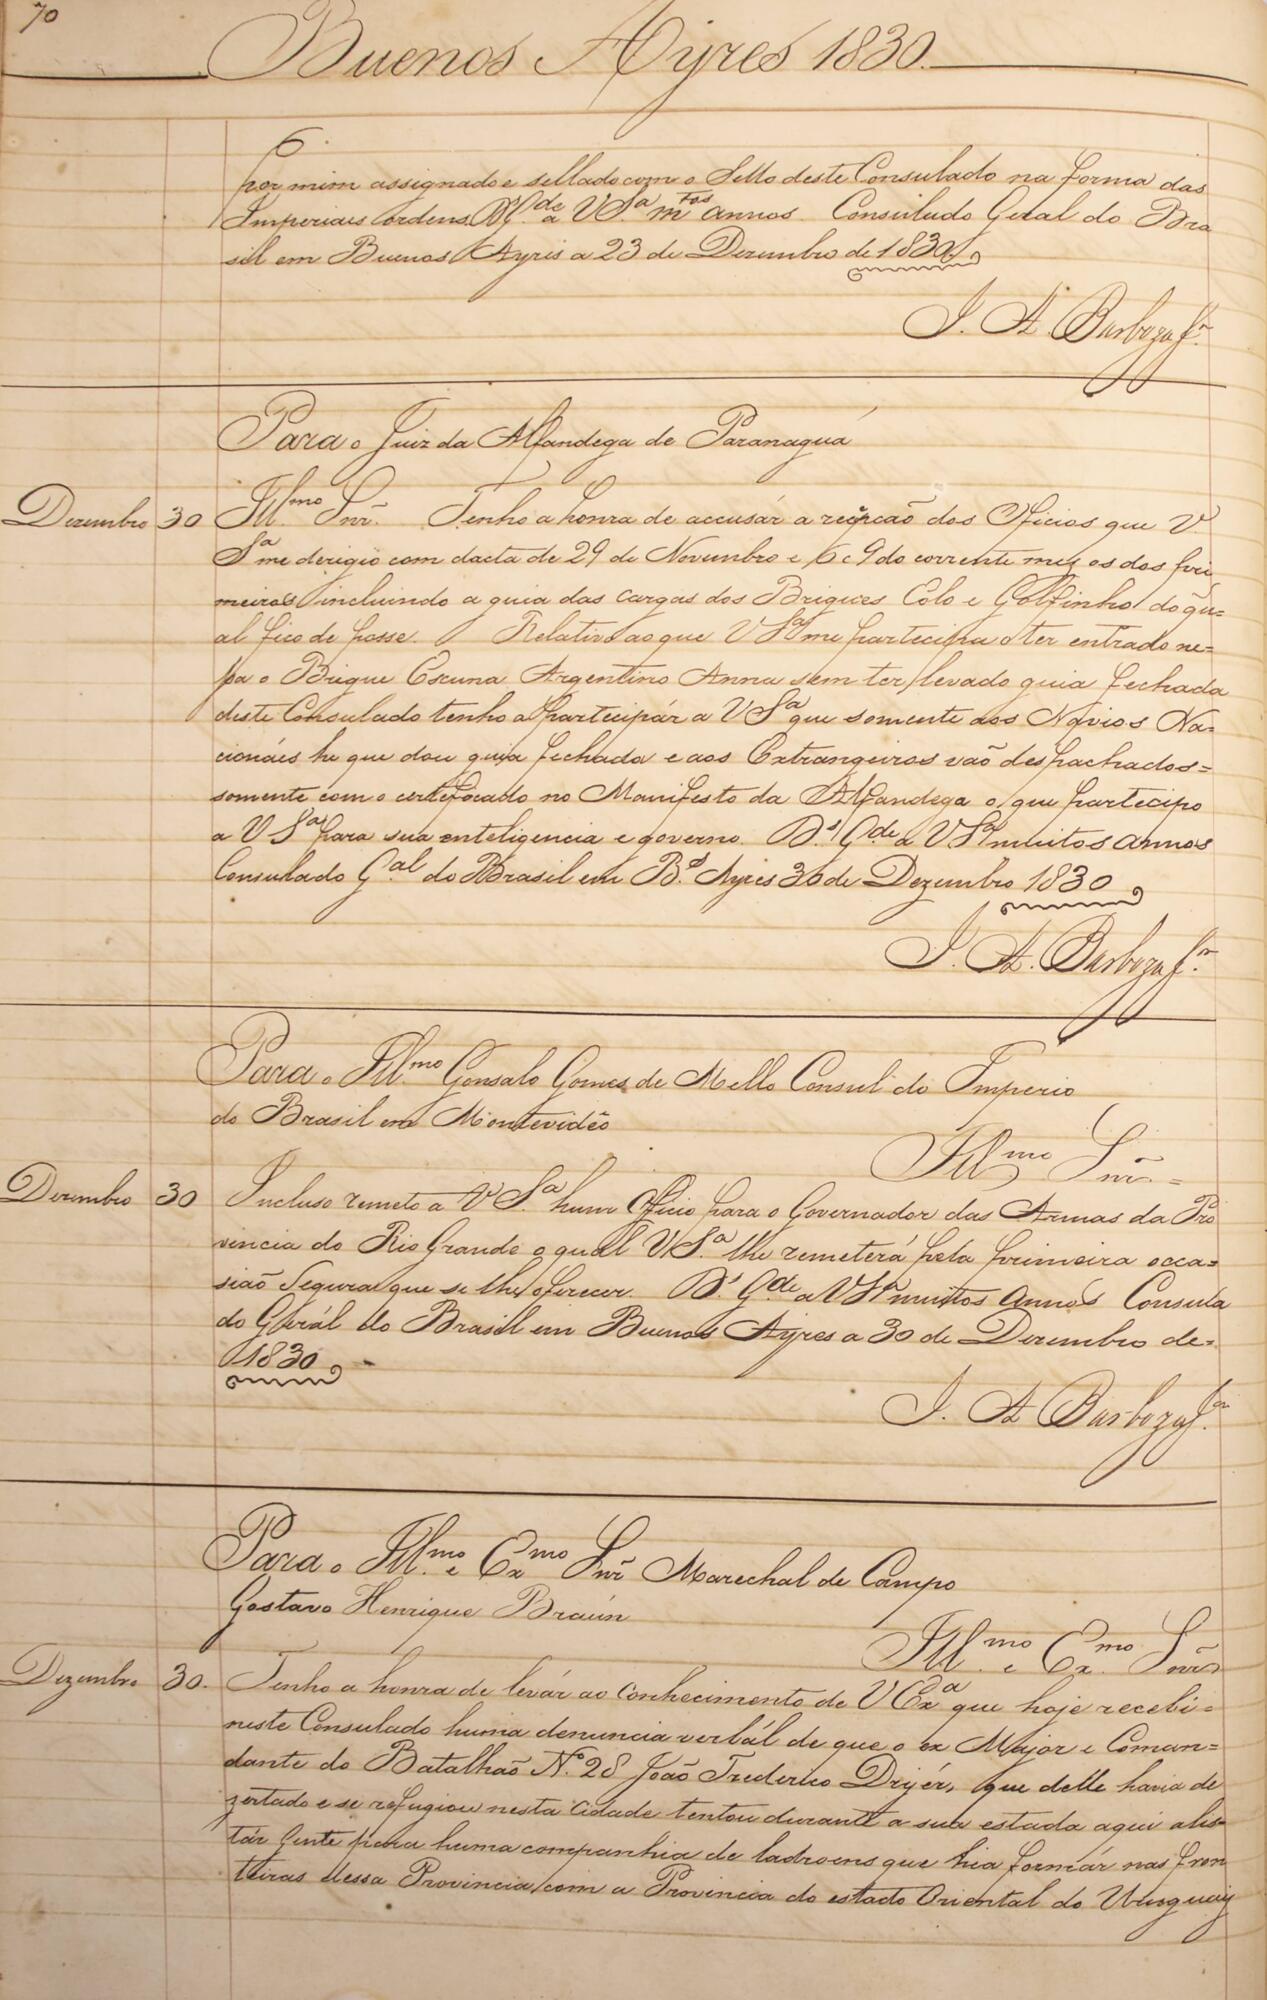 70
Buenos Ayres 1830.
por mim assignado e sellado com o Sello deste Consulado na forma das
Imperiaes ordens. D.s G.de a V S.a m.tos annos Consulado Geral do Bra
sil em Buenos Ayres a 23 de Dezembro de 1830
J. A. Barboza
Para o Juiz da Alfandega de Paranaguá
Dezembro 30 Ill.mo Snr. Tenho a honra de accusár a recepcão dos Oficios que V.
S.a me derigio com dacta de 29 de Novembro e 6 e 9 do corrente mez os dos pri
meiros incluindo a guia das cargas dos Brigues Colo e Golfinho do qu=
al fico de posse. Relativo ao que V S.a me partecipa o ter entrado ne=
o Brigue Escuna Argentino Anna sem ter levado guia fechada
deste Consulado tenho a partecipár a V S.a que somente aos Navios Na=
cionáes he que dou guia fechada e aos Extrangeiros vaõ despachados=
somente com o certefocado no Manifesto da Alfandega o que partecipo
a V S.a para sua enteligencia e governo. D.s G.de a V S.a muitos annos
Consulado G.al do Brasil em B.s Ayres 30 de Dezembro 1830
J. A. Barboza
Para o Ill.mo Gonsalo Gomes de Mello Consul do Imperio
do Brasil em Montevidéo
Ill.mo Snr. =
Dezembro 30 Incluso remeto a V S.a hum Oficio para o Governador das Armas da Pro
vincia do Rio Grande o qual V S.a lhe remeterá pela primeira occa=
siaõ Segura que se lhe oferecer. D.s G.de a V S.a muitos annos Consula
do Gerál do Brasil em Buenos Ayres a 30 de Dezembro de=
1830
J. A. Barboza
Para o Ill.mo e Ex.mo Snr Marechal de Campo
Gostavo Henrique Braún
Ill.mo e Ex.mo Snr
Dezembro 30. Tenho a honra de levár ao conhecimento de V Ex.a que hoje recebi=
neste Consulado huma denuncia verbál de que o ex Major e Coman=
dante do Batalhaõ N.o 28 Joaõ Frederico Drijér, que delle havia de
zertado e se refugiou nesta cidade tentou durante a sua estada aqui alis=
tár Gente para huma companhia de ladroens que hia formár nas fron
teiras dessa Provincia com a Provincia do estado Oriental do Uruguay